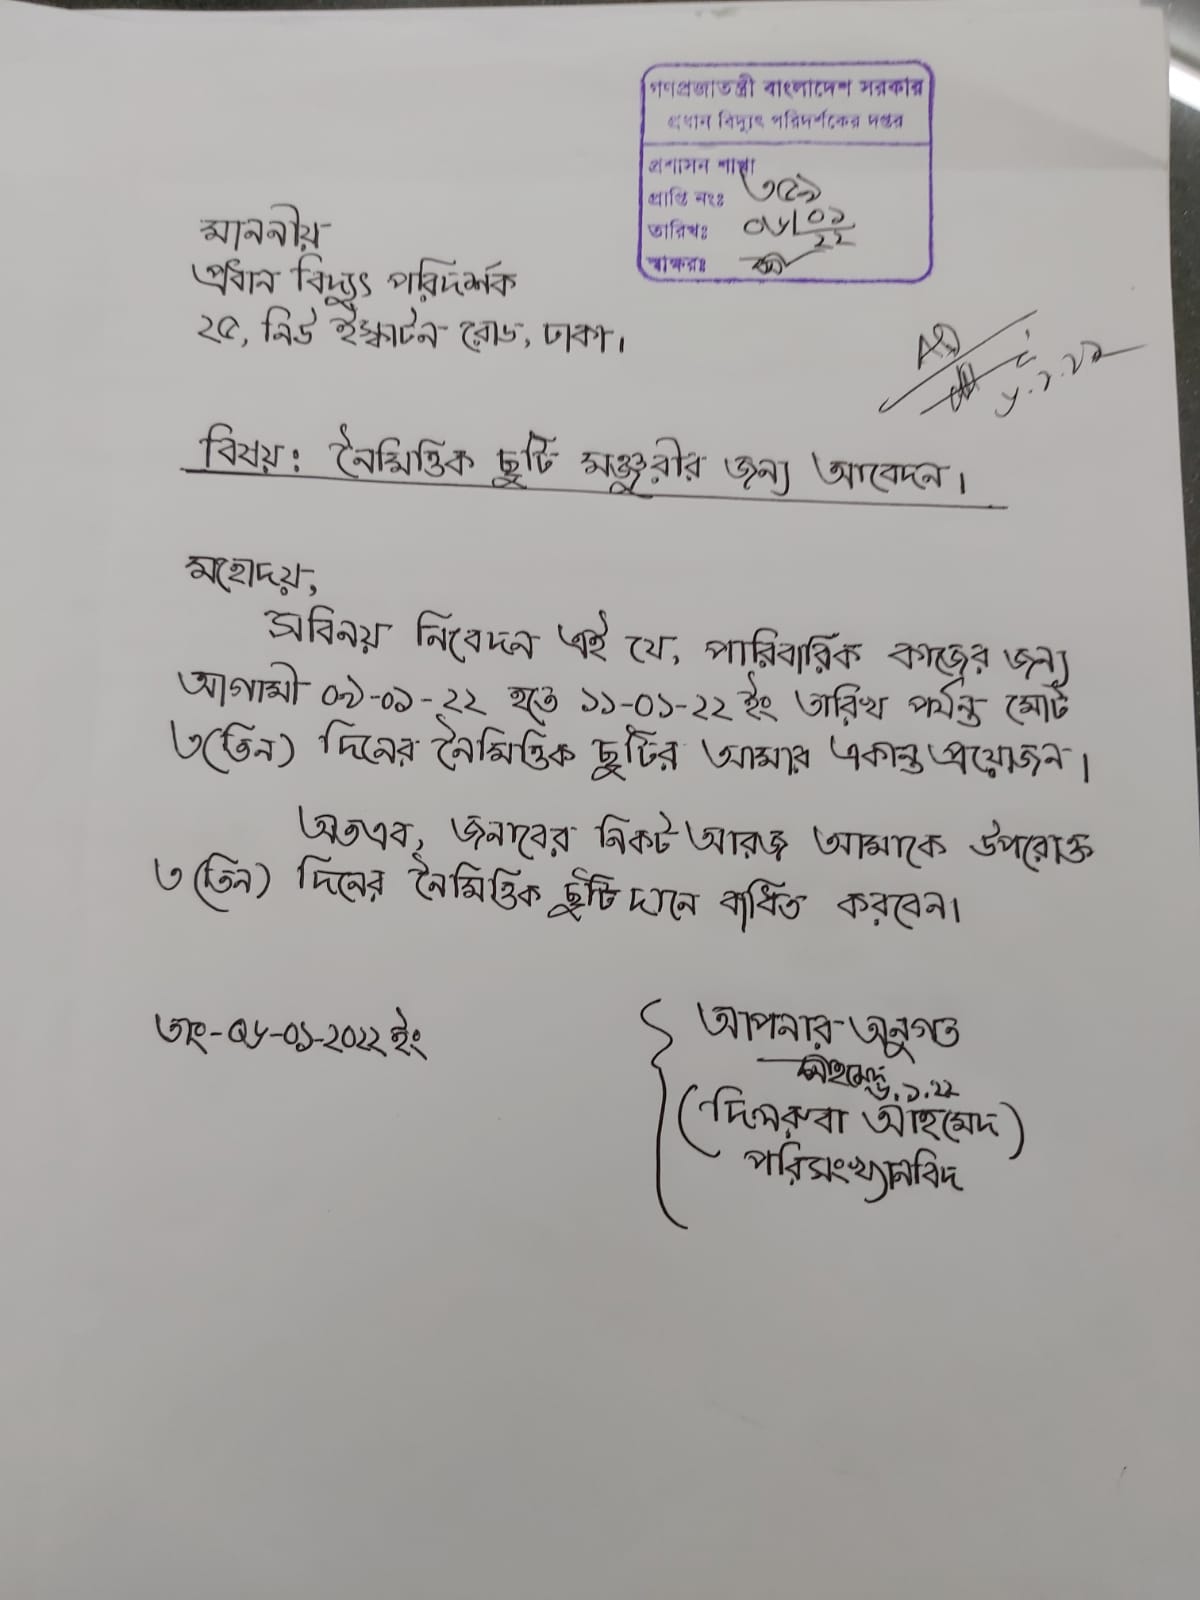 গণপ্রজাতন্ত্রী বাংলাদেশ সরকার
প্রধান বিদ্যুৎ পরিদর্শকের দপ্তর
প্রশাসন শাখা
প্রাপ্তি নংঃ ৩৫৯
তারিখঃ ০৬/০১/২২
স্বাক্ষরঃ
মাননীয়
প্রধান বিদ্যুৎ পরিদর্শক
২৫, নিউ ইস্কাটন রোড, ঢাকা।
AD
৬.১.২২
বিষয়: নৈমিত্তিক ছুটি মঞ্জুরীর জন্য আবেদন।
মহোদয়,
সবিনয় নিবেদন এই যে, পারিবারিক কাজের জন্য
আগামী ০৯-০১-২২ হতে ১১-০১-২২ ইং তারিখ পর্যন্ত মোট
৩(তিন) দিনের নৈমিত্তিক ছুটির আমার একান্ত প্রয়োজন।
অতএব, জনাবের নিকট আরজ আমাকে উপরোক্ত
৩ (তিন) দিনের নৈমিত্তিক ছুটি দানে বাধিত করবেন।
তাং-০৬-০১-২০২২ ইং
আপনার অনুগত
৬.১.২২
(দিলরুবা আহমেদ)
পরিসংখ্যানবিদ